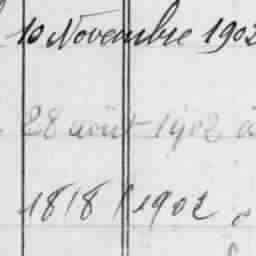 10 Novembre 1902
28 août 1902 à
1818 1902